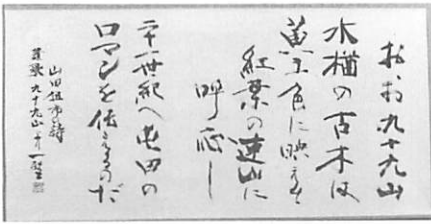 おお九十九山
水楢の古木は
黄金色に映えて
紅葉の連山に
呼応し
二十一世紀へ屯田の
ロマンを伝えるのだ
山田
九十九山より